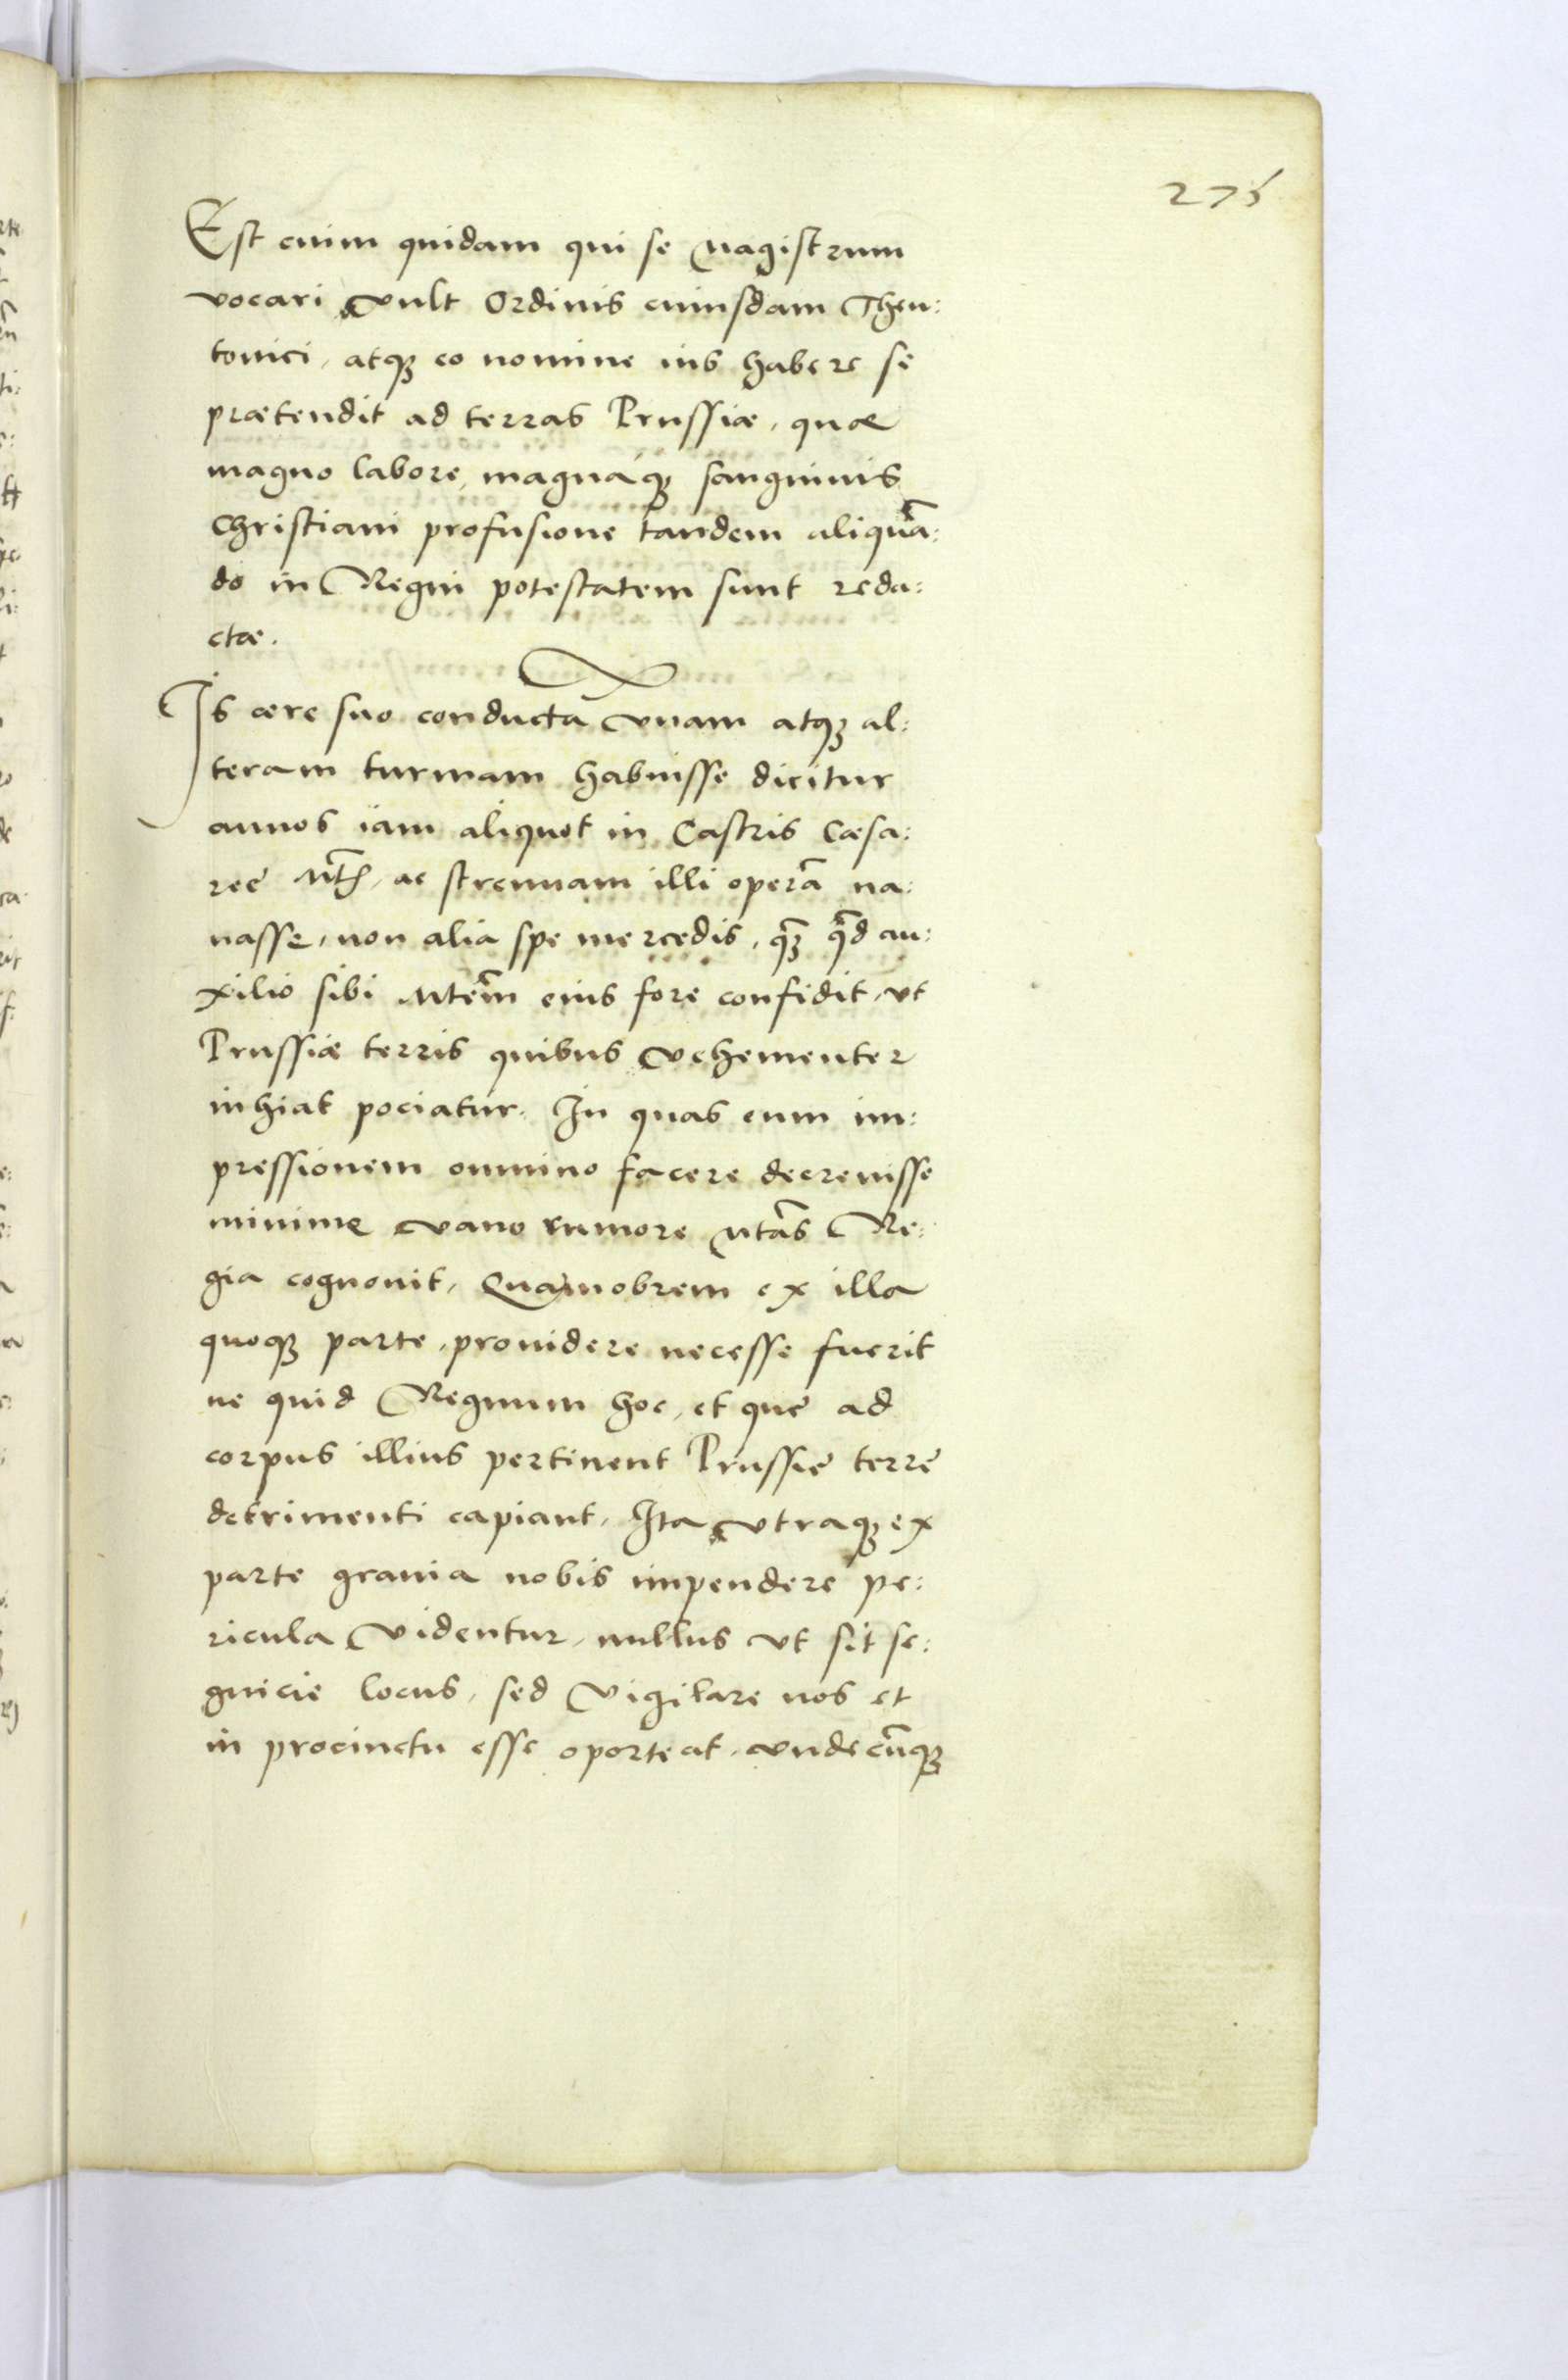 275
Est enim quidam qui se Magistrum
vocari vult Ordinis cuiusdam Theu:
tonici, atqꝫ eo nomine ius habere se
prætendit ad terras Prussiæ, quæ
magno labore, magnáqꝫ sanguinis
Christiani profusione tandem aliquã:
do in Regni potestatem sunt reda:
ctæ.
Is ære suo conductã vnam atqꝫ al:
teram turmam habuisse dicitur
annos iam aliquot in Castris Cæsa:
reę Mtis, ac strennuam illi operã na:
uasse, non alia spe mercedis, qꝫ̃ qd̃ au:
xilio sibi Mtem̃ eius fore confidit, vt
Prussiæ terris quibus vehementer
inhiat pociatur. In quas eum im:
pressionem omnino facere decreuisse
minime vano rumore Mtãs Re:
gia cognouit, Quamobrem ex illa
quoqꝫ parte, prouidere necesse fuerit
ne quid Regnum hoc, et quę ad
corpus illius pertinent Prussię terrę
detrimenti capiant, Ita vtraqꝫ ex
parte grauia nobis impendere pe:
ricula videntur, nullus vt sit se:
gnicię locus, sed vigilare nos et
in procinctu esse oporteat, vndecũqꝫ